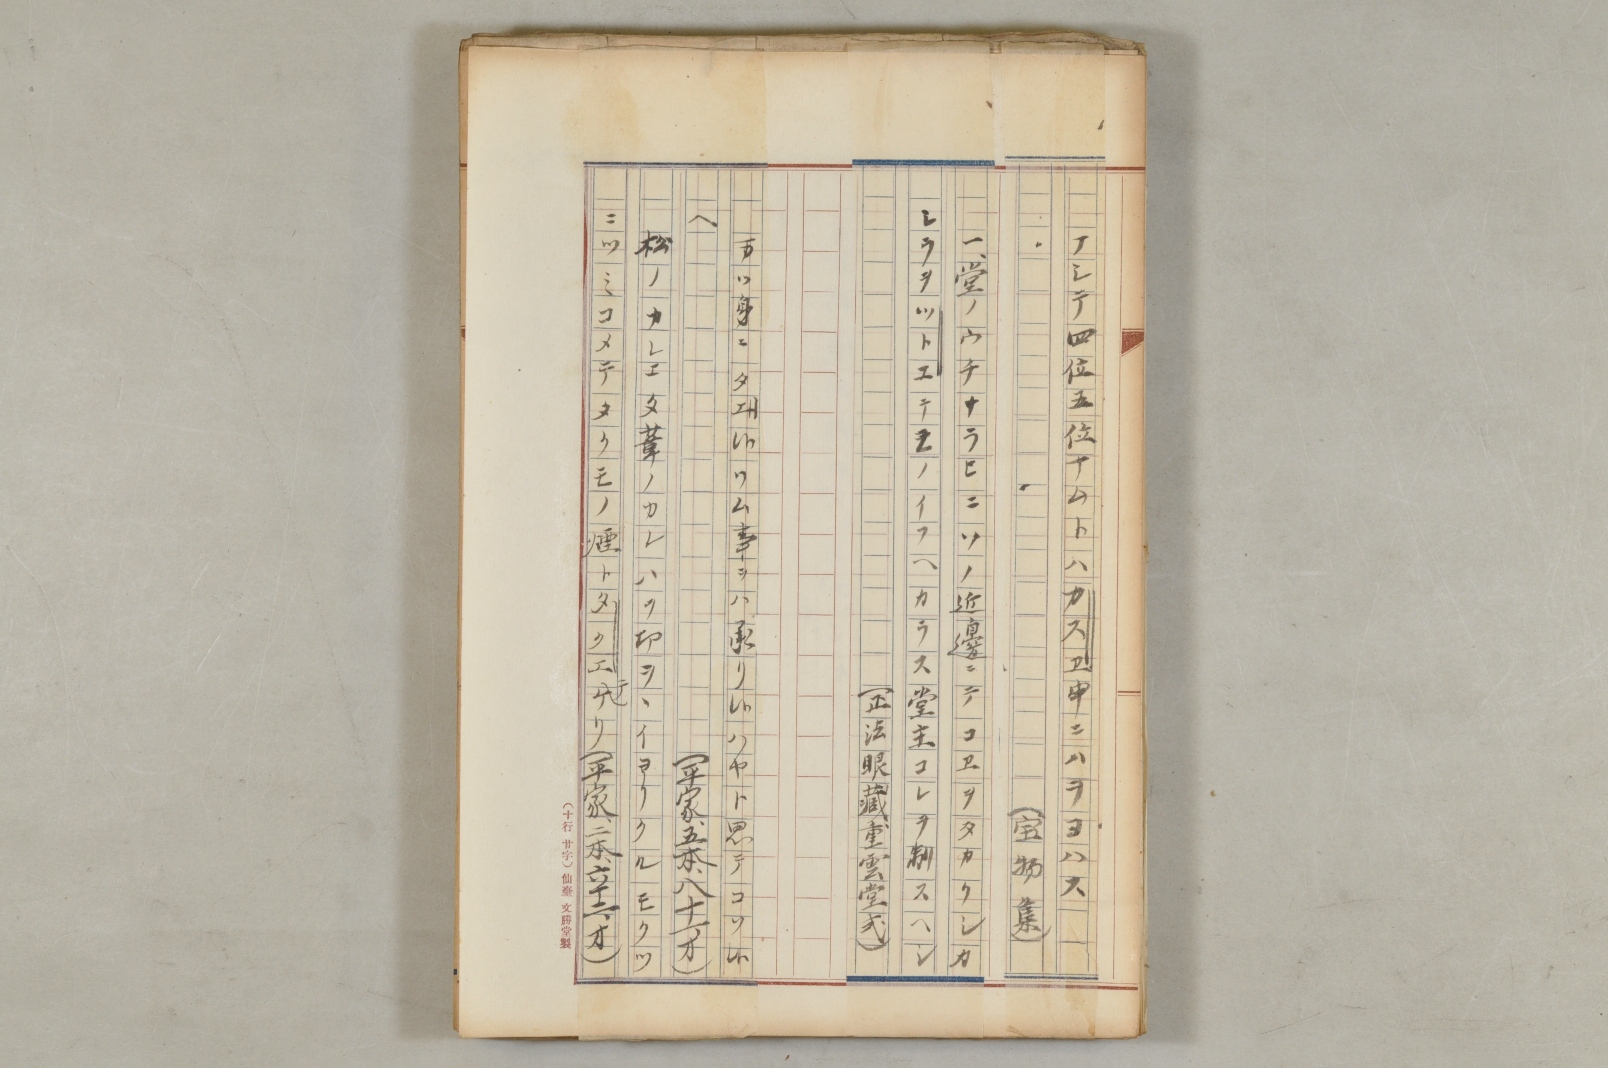 ナシテ四位五位ナムトハカスヱ申ニハヲヨハス
(宝物集)
一、堂ノウチナラヒニソノ近邊ニテコヱヲタカクシカ
シラヲツトエテモノイフヘカラス堂主コレヲ制スヘシ
(正法眼藏重雲堂式)
身ニタエ
ム事ヲハ承リ
ハヤト思テコソ
ヘ
(平家、五本、八十一オ)
松ノカレエタ葦ノカレハヲ切ヲヽイヨリクルモクツ
ニツミコメテタクモノ煙トタクエテ
(平家、二本、六十二オ)
(十行 廿字) 仙臺 文勝堂製